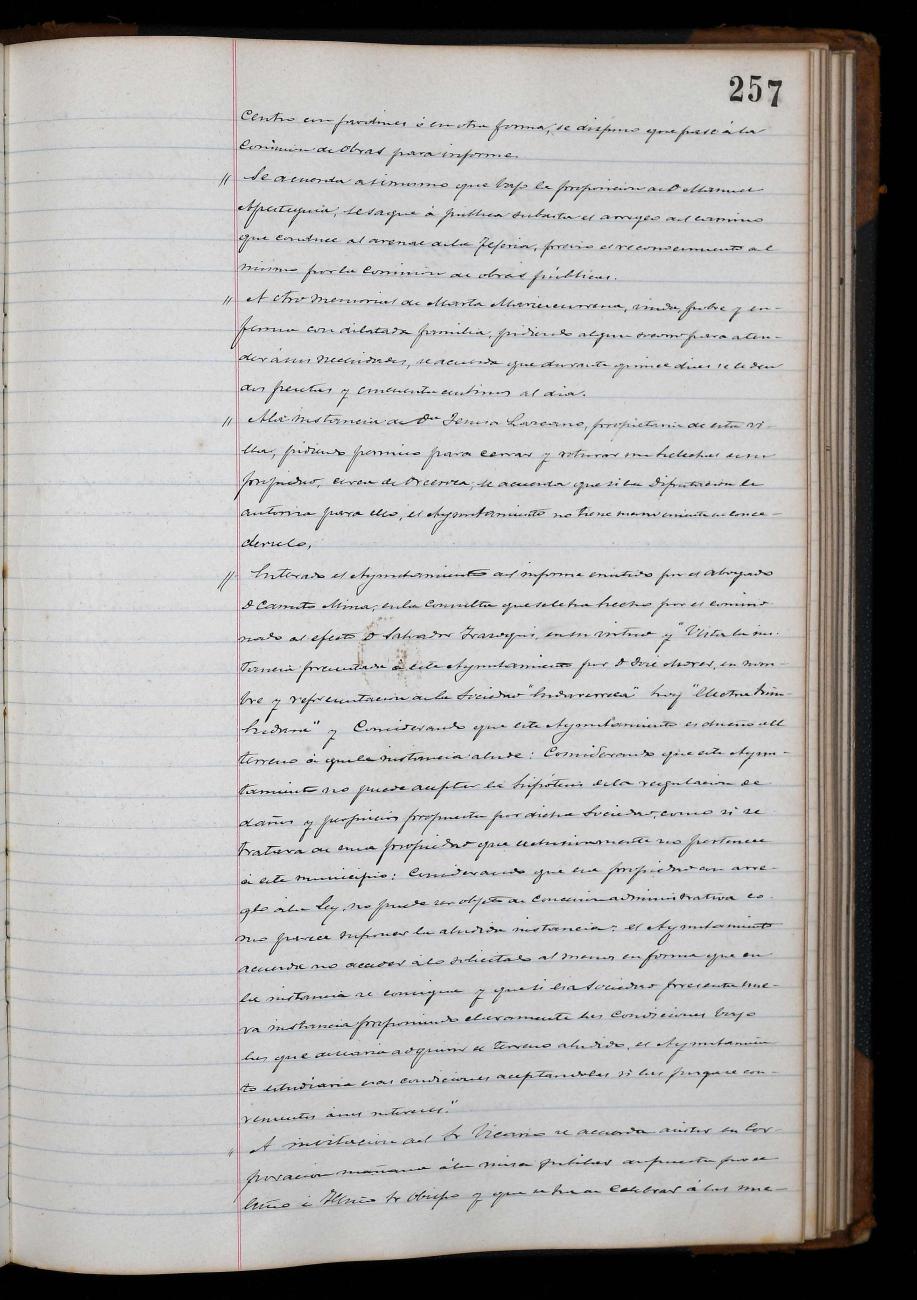 257
Centro con jardines ó en otra forma, se dispuso que pase á la
Comision de Obras para informe.
" Se acuerda asimismo que bajo la proposicion de D. Manuel
Apezteguia, se saque á publica subasta el arreglo del camino
que conduce al arenal de la Tejeria, previo el reconocimiento del
mismo por la Comision de obras públicas.
" A otro memorial de Marta, viuda, pobre y en-
ferma con dilatada familia, pidiendo algun socorro para aten-
der á sus necesidades, se acuerda que durante quince dias se le den
dos pesetas y cincuenta centimos al dia.
" A la instancia de Dª Teresa Lazcano, propietaria de esta vi-
lla, pidiendo permiso para cerrar y roturar un helechal de su
propiedad, cerca de, se acuerda que si la Diputacion le
autoriza para ello, el Ayuntamiento no tiene inconveniente en conce-
derselo.
" Enterado el Ayuntamiento del informe emitido por el abogado
D. Camilo Mina, en la Consulta que se le ha hecho por el comisio-
nado al efecto D. Salvador, en su virtud y "Vista la ins-
tancia presentada á este Ayuntamiento por D. José, en nom-
bre y representacion de la Sociedad " " hoy "Electra
" y Considerando que este Ayuntamiento es dueño del
terreno á que la instancia alude: Considerando que este Ayun-
tamiento no puede aceptar la hipótesis de la regulacion de
daños y perjuicios propuesta por dicha Sociedad, como si se
tratara de una propiedad que exclusivamente no pertenece
á este municipio: Considerando que esa propiedad con arre-
glo á la Ley, no puede ser objeto de concesion administrativa co-
mo parece suponer la aludida instancia: el Ayuntamiento
acuerda no acceder á lo solicitado al menos en forma que en
la instancia se consigna y que si esa Sociedad presenta nue-
va instancia proponiendo claramente las condiciones bajo
las que desearia adquirir el terreno aludido, el Ayuntamien-
to estudiaria esas condiciones aceptandolas si las juzgare con-
venientes á sus intereses."
" A invitacion del Sr Vicario se acuerda asistir en Cor-
poracion mañana á la misa dispuesta por el
Excmo é Iltmo Sr Obispo y que se ha de celebrar á las nue-